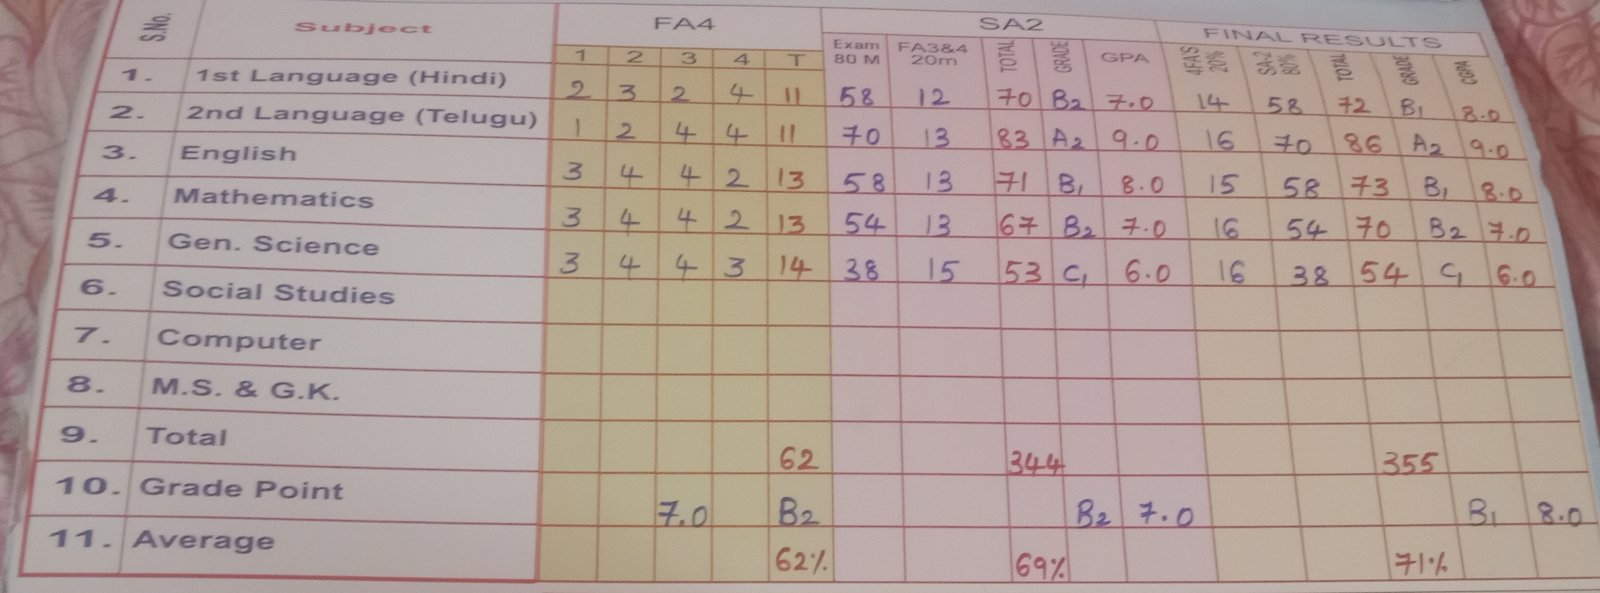 S.No. Subject FA4 SA2 FINAL RESULTS
1 2 3 4 T Exam 80 M FA3&4 20m TOTAL GRADE GPA 4FA'S 20% SA-2 80% TOTAL GRADE CGPA
1. 1st Language (Hindi) 2 3 2 4 11 58 12 70 B2 7.0 14 58 72 B1 8.0
2. 2nd Language (Telugu) 1 2 4 4 11 70 13 83 A2 9.0 16 70 86 A2 9.0
3. English 3 4 4 2 13 58 13 71 B1 8.0 15 58 73 B1 8.0
4. Mathematics 3 4 4 2 13 54 13 67 B2 7.0 16 54 70 B2 7.0
5. Gen. Science 3 4 4 3 14 38 15 53 C1 6.0 16 38 54 C1 6.0
6. Social Studies
7. Computer
8. M.S. & G.K.
9. Total 62 344 355
10. Grade Point 7.0 B2 B2 7.0 B1 8.0
11. Average 62% 69% 71%